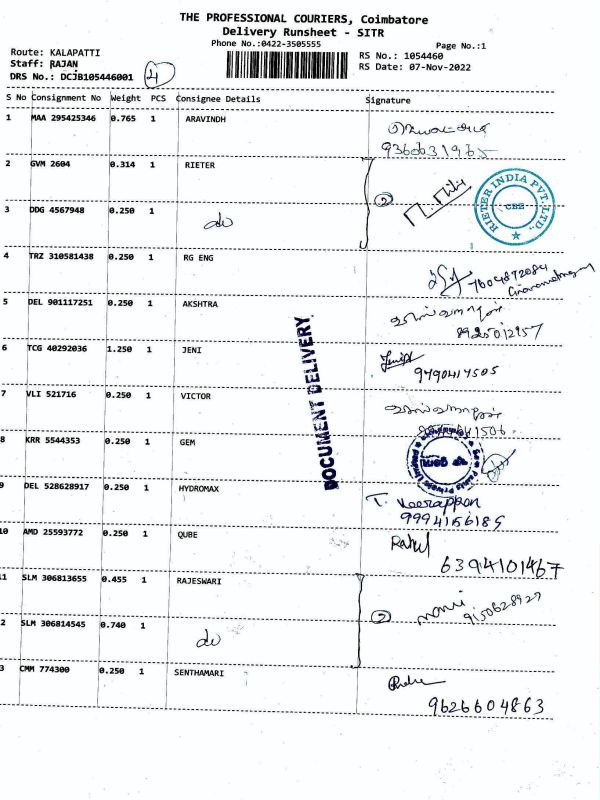 THE PROFESSIONAL COURIERS, Coimbatore
Delivery Runsheet - SITR
Phone No.:0422-3505555
Page No.:1
Route: KALAPATTI
Staff: RAJAN
DRS No.: DCJB105446001
4
RS No.: 1054460
RS Date: 07-Nov-2022
S No Consignment No Weight PCS Consignee Details Signature
1 MAA 295425346 0.765 1 ARAVINDH
9360631965
2 GVM 2604 0.314 1 RIETER
2
RIETER INDIA PVT. LTD.,
CBE
3 DDG 4567948 0.250 1 do
4 TRZ 310581438 0.250 1 RG ENG
7604872084
5 DEL 901117251 0.250 1 AKSHTRA
8925012957
6 TCG 40292036 1.250 1 JENI
9790417505
7 VLI 521716 0.250 1 VICTOR
8 KRR 5544353 0.250 1 GEM
DOCUMENT DELIVERY
9 DEL 528628917 0.250 1 HYDROMAX
T. Veerappan
9994156185
10 AMD 25593772 0.250 1 QUBE
Rahul
6394101467
11 SLM 306813655 0.455 1 RAJESWARI
2
9150628927
2 SLM 306814545 0.740 1 do
3 CMM 774300 0.250 1 SENTHAMARI
9626604863